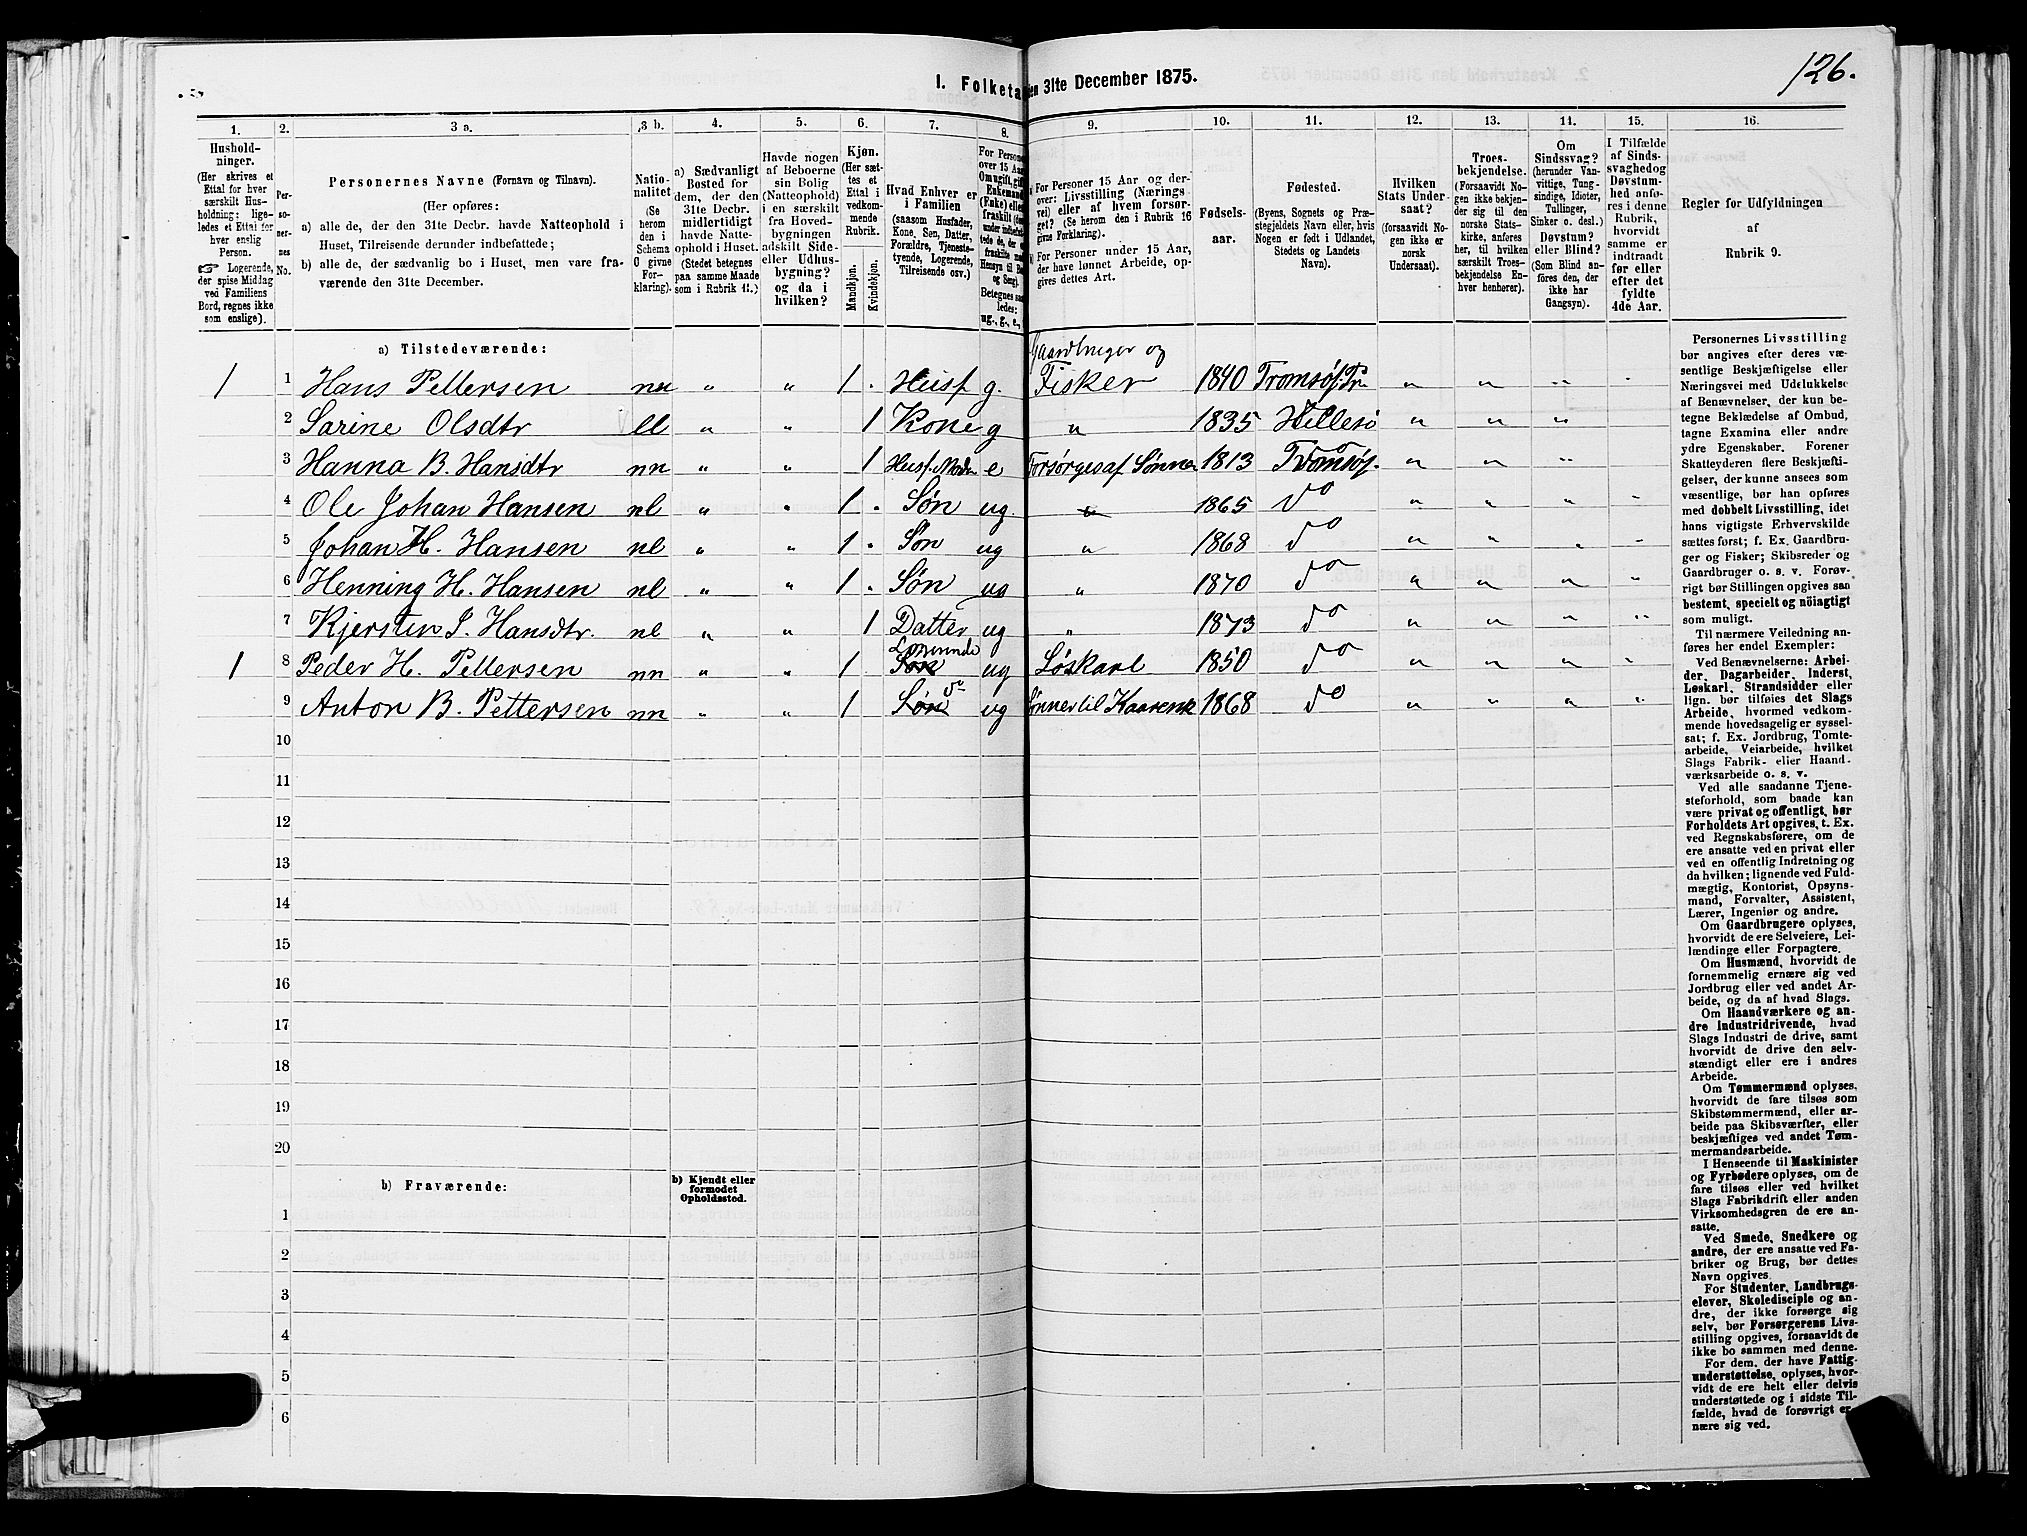 126.
I. Folketa en 31te December 1875.
1. 2. 3 a. 3 b. 4. 5. 6. 7. 8. 9. 10. 11. 12. 13. 14. 15. 16.
Hushold-
ninger.
(Her skrives et
Ettal for hver
særskilt Hus-
holdning; lige-
ledes et Ettal for
hver enslig
Person.
☞ Logerende,
der spise Middag
ved Familiens
Bord, regnes ikke
som enslige).
Per-
so-
ner-
nes
No.
Personernes Navne (Fornavn og Tilnavn).
(Her opføres:
a) alle de, der den 31te Decbr. havde Natteophold i
Huset, Tilreisende derunder indbefattede;
b) alle de, der sædvanlig bo i Huset, men vare fra-
værende den 31te December.
Natio-
nalitet
(Se
herom
den i
Schema
O givne
For-
klaring).
a) Sædvanligt
Bosted for
dem, der den
31te Decbr.
midlertidigt
havde Natte-
ophold i Huset.
(Stedet betegnes
paa samme Maade
som i Rubrik 11.)
Havde nogen
af Beboerne
sin Bolig
(Natteophold)
i en særskilt
fra Hoved-
bygningen
adskilt Side-
eller Udhus-
bygning?
og da i
hvilken?
Kjøn.
(Her sæt-
tes et
Ettal i
vedkom-
mende
Rubrik.
Mandkjøn.
Kvindekjøn.
Hvad Enhver er
i Familien
(saasom Husfader,
Kone, Søn, Datter,
Forældre, Tjeneste-
tyende, Logerende,
Tilreisende osv.)
For Persone
over 15 Aar
Om ugift, gift
Enkemand
(Enke) eller
fraskilt
Betegnes saa
ledes:
ug., g., e.,
a) For Personer 15 Aar og der-
over: Livsstilling (Nærings-
vei) eller af hvem forsør-
get? (Se herom den i Rubrik 16
givne Forklaring).
b) For Personer under 15 Aar,
der have lønnet Arbeide, op-
gives dettes Art.
Fødsels-
aar.
Fødested.
(Byens, Sognets og Præ-
stegjeldets Navn eller, hvis
Nogen er født i Udlandet,
Stedets og Landets
Navn).
Hvilken
Stats Under-
saat?
(forsaavidt No-
gen ikke er
norsk
Undersaat).
Troes-
bekjendelse.
(Forsaavidt No-
gen ikke bekjen-
der sig til den
norske Stats-
kirke, anføres
her, til hvilken
særskilt Troes-
bekjendelse En-
hver henhører).
Om
Sindssvag?
(herunder Van-
vittige, Tung-
sindige, Idioter,
Tullinger,
Sinker o. desl.)
Døvstum?
eller Blind?
(Som Blind an-
føres den, der
ikke har
Gangsyn).
I Tilfælde
af Sinds-
svaghed og
Døvstum-
hed anfø-
res i denne
Rubrik,
hvorvidt
samme er
indtraadt
før eller
efter det
fyldte
4de Aar.
Regler for Udfyldningen
af
Rubrik 9.
a) Tilstedeværende:
Gaardbruger og
1 1 Hans Pettersen nn " " 1 . Husf g. Fisker 1840 Tromsøf. Pr. " " " "
2 Sarine Olsdtr ll " " 1 Kone g " 1835 Hillesø " " "
3 Hanna B. Hansdtr nn " " 1 Husf. Moder e Forsørges af Sønnen 1813 Tromsøf. " " "
4 Ole Johan Hansen nl " " 1 . Søn ug. " 1865 do " " " "
5 Johan H. Hansen nl " " 1 . Søn ug " 1868 do " " " "
6 Henning H. Hansen nl " " 1 . Søn ug " 1870 do " " " "
7 Kjersten S. Hansdtr. nl " " 1 Datter ug " 1873 do " " " "
Logerende
1 8 Peder H. Pettersen nn " " 1 Søn ug Løskarl 1850 do " " " "
do
9 Anton B. Pettersen nn " " 1 Søn ug Sønnes til 1868 do " " " "
10
11
12
13
14
15
16
17
18
19
20
b) Fraværende:
b) Kjendt eller
formodet
Opholdssted.
1
2
3
4
5
6
Personernes Livsstilling
bør angives efter deres væ-
sentlige Beskjæftigelse eller
Næringsvei med Udelukkelse
af Benævnelser, der kun be-
tegne Beklædelse af Ombud,
tagne Examina eller andre
ydre Egenskaber. Forener
Skatteyderen flere Beskjæfti-
gelser, der kunne ansees som
væsentlige, bør han opføres
med dobbelt Livsstilling, idet
hans vigtigste Erhvervskilde
sættes først; f. Ex. Gaardbru-
ger og Fisker; Skibsreder og
Gaardbruger o. s. v. Forøv-
rigt bør Stillingen opgives saa
bestemt, specielt og nöiagtigt
som muligt.
Til nærmere Veiledning an-
føres her endel Exempler:
Ved Benævnelserne: Arbei-
der, Dagarbeider, Inderst,
Løskarl, Strandsidder eller
lign. bør tilføies det Slags
Arbeide, hvormed vedkom-
mende hovedsagelig er syssel-
sat; f. Ex. Jordbrug, Tomte-
arbeide, Veiarbeide, hvilket
Slags Fabrik- eller Haand-
værksarbeide o. s. v.
Ved alle saadanne Tjene-
steforhold, som baade kan
være privat og offentligt, bør
Forholdets Art opgives, t. Ex.
ved Regnskabsførere, om de
ere ansatte ved en privat eller
ved en offentlig Indretning og
da hvilken; lignende ved Fuld-
mægtig, Kontorist, Opsyns-
mand, Forvalter, Assistent,
Lærer, Ingeniør og andre.
Om Gaardbrugere oplyses,
hvorvidt de ere Selveiere, Lei-
lændinge eller Forpagtere.
Om Husmænd, hvorvidt de
fornemmelig ernære sig ved
Jordbrug eller ved andet Ar-
beide, og da af hvad Slags.
Om Haandværkere og an-
dre Industridrivende, hvad
Slags Industri de drive, samt
hvorvidt de drive den selv-
stændigt eller ere i andres
Arbeide.
Om Tømmermænd oplyses,
hvorvidt de fare tilsøs som
Skibstømmermænd, eller ar-
beide paa Skibsværfter, eller
beskjæftiges ved andet Tøm-
mermandsarbeide.
I Henseende til Maskinister
og Fyrbødere oplyses, om de
fare tilsøs eller ved hvilket
Slags Fabrikdrift eller anden
Virksomhedsgren de ere an-
satte.
Ved Smede, Snedkere og
andre, der ere ansatte ved Fa-
briker og Brug, bør dettes
Navn opgives.
For Studenter, Landbrugs-
elever, Skoledisciple og an-
dre, der ikke forsørge sig
selv, bør Forsørgerens Livs-
stilling opgives, forsaavidt de
ikke bo sammen med denne.
For dem, der have Fattig-
understøttelse, oplyses, hvor-
vidt de ere helt eller delvis
understøttede og i sidste Til-
fælde, hvad de forøvrigt er-
nære sig ved.